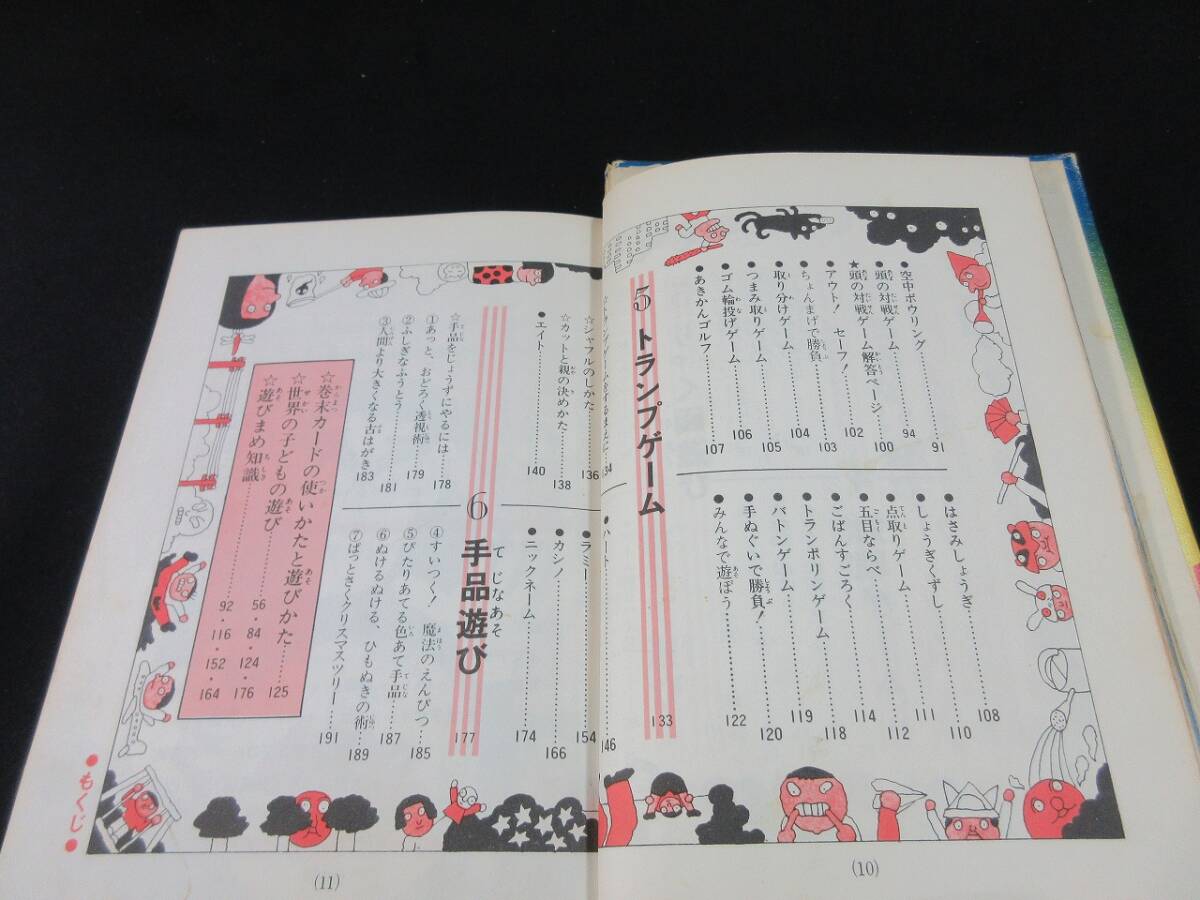 ●空中ボウリング……91
●頭の対戦ゲーム……94
★頭の対戦ゲーム解答ページ……100
●アウト! セーフ!……102
●ちょんまげで勝負……103
●取り分けゲーム……104
●つまみ取りゲーム……105
●ゴム輪投げゲーム……106
●あきかんゴルフ……107
●はさみしょうぎ……108
●しょうぎくずし……110
●点取りゲーム……111
●五目ならべ……112
●ごばんすごろく……114
●トランポリンゲーム……118
●バトンゲーム……119
●手ぬぐいで勝負!……120
●みんなで遊ぼう……122
5 トランプゲーム 133
134
☆シャフルのしかた……136
☆カットと親の決めかた……138
●エイト……140
●ハート……146
●ラミー……154
●カシノ……166
●ニックネーム……174
6 手品遊び 177
☆手品をじょうずにやるには……178
①あっと、おどろく透視術……179
②ふしぎなふうとう……181
③人間より大きくなる古はがき……183
④すいつく! 魔法のえんぴつ……185
⑤ぴたりあてる色あて手品……187
⑥ぬけるぬける、ひもぬきの術……189
⑦ぱっとさくクリスマスツリー……191
☆巻末カードの使いかたと遊びかた……125
☆世界の子どもの遊び……56・84・124・176
☆遊びまめ知識……92・116・152・164
●もくじ●
(10)
(11)